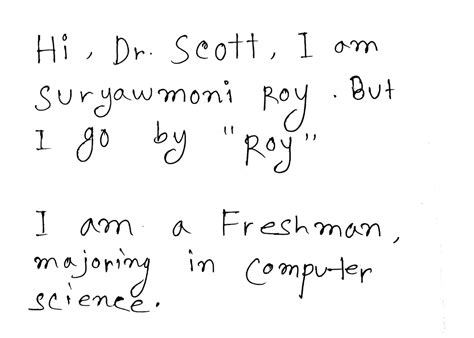 Hi, Dr. Scott, I am
Suryawmoni Roy. But
I go by "Roy"
I am a Freshman,
majoring in computer
science.